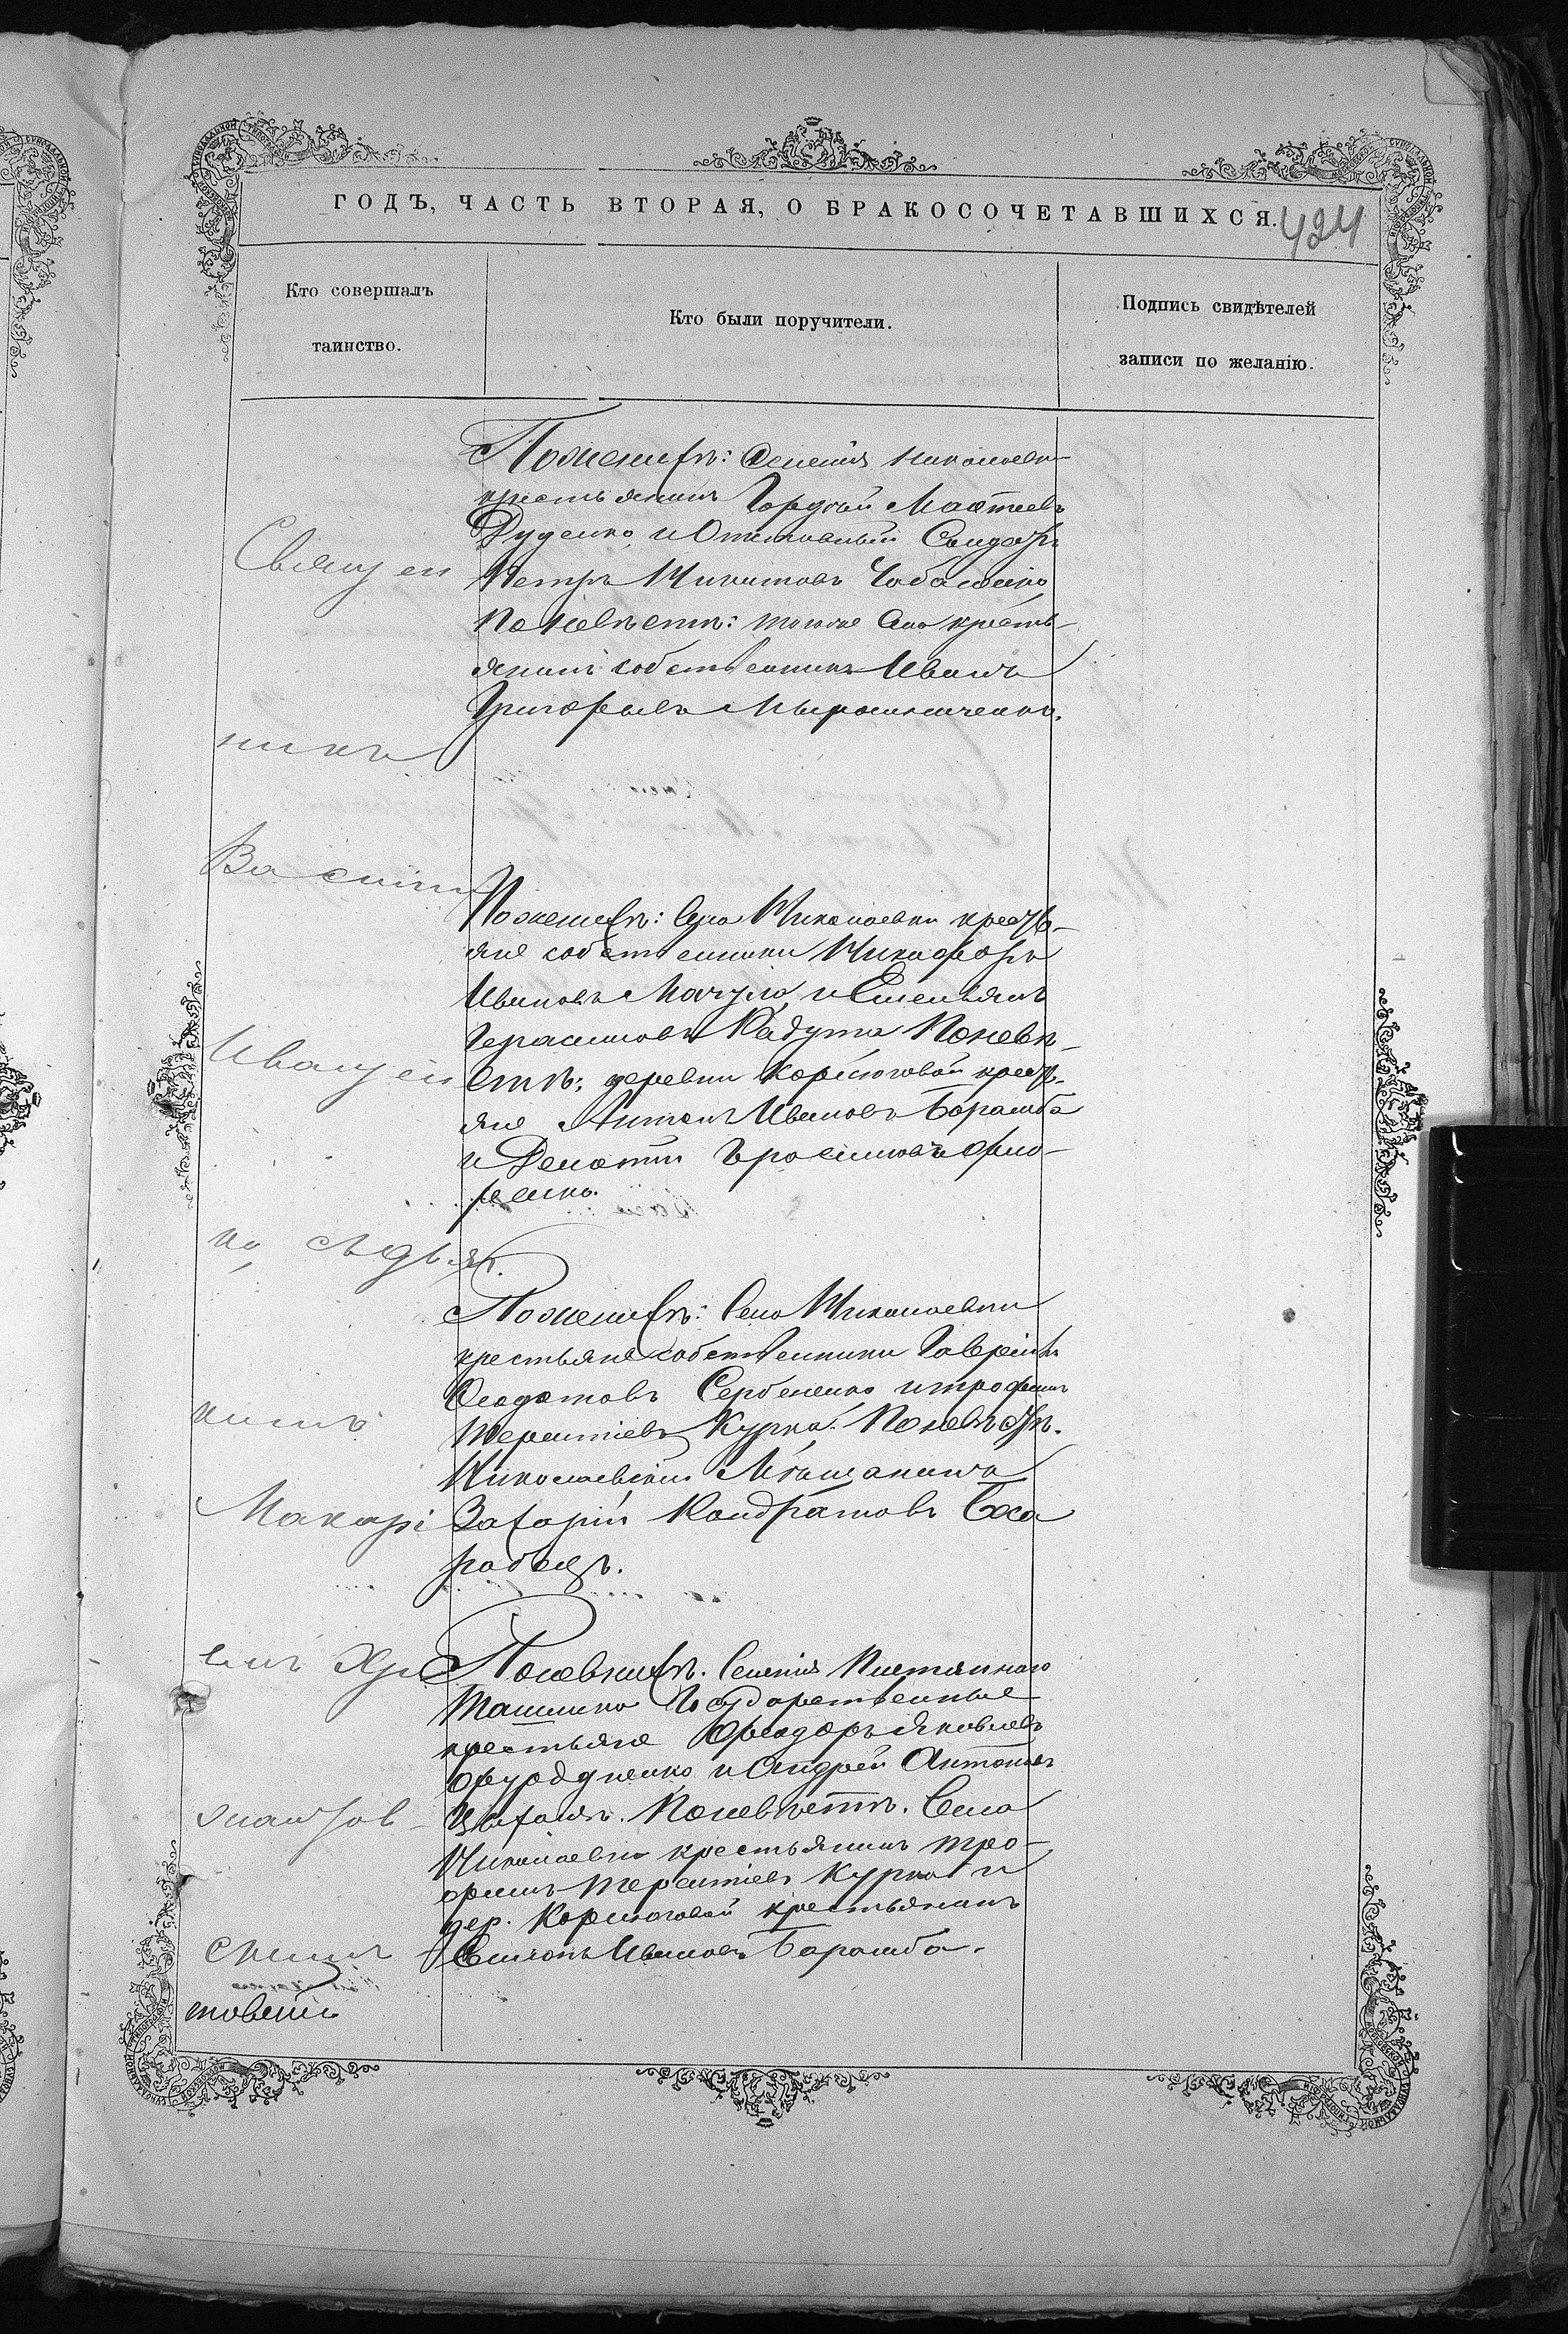 ГОДЪ, ЧАСТЬ ВТОРАЯ, О БРАКОСОЧЕТАВШИХСЯ.
424
Кто совершалъ
таинство.
Кто были поручители.
Подпись свидѣтелей
записи по желанію.
Священ
никъ
Васили
Иващен
ко, съ дья
комъ
Макарі
емъ Хри
Пожених: Селенія Николаевки
крестьянинъ Гордѣй Матѣевъ
Руденко, и Отставный Солдатъ
Петръ Никитовъ Чабаненко
По невѣстѣ: тогоже Села кресть-
янинъ собственникъ Иванъ
Григорьевъ Мирошниченко.
Пожених: Села Николаевки кресть-
яне собственники Никифоръ
Ивановъ Мачула, и Емельянъ
Герасимовъ Кадута По невѣ-
стѣ; деревни Корсюговой кресть-
яне Антонъ Ивановъ Барамба
и Дементій Фео-
ренко.
Пожених: Села Николаевки
крестьяне собственники Гавріилъ
Феодотовъ Сербененко и трофимъ
Терентіевъ Курка. По невѣстѣ.
Николаевскій Мѣщанинъ
Захарій Кондратовъ Беса
рабецъ.
По жених. Селенія Песчанаго
Ташино Государственные
крестьяне Феодоръ Яковлевъ
и Андрей Антоновъ
По невѣстѣ. Села
Николаевки крестьянинъ тро-
фимъ Терентіевъ Курка и
дер. Корсюговой крестьянинъ
Ивановъ Барамба.